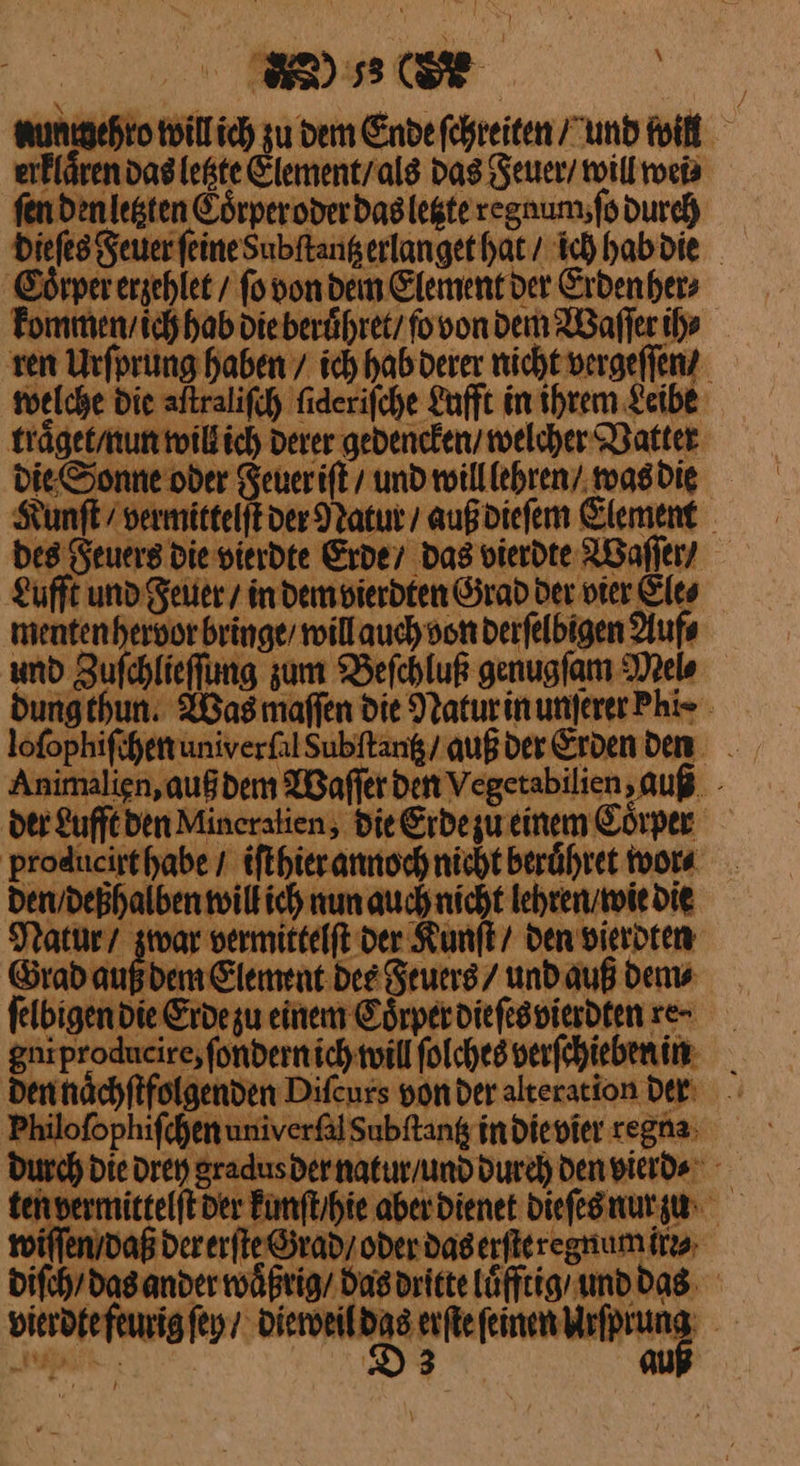 53
nunmehro will ich zu dem Ende ſchreiten / und will
erklaͤren das letzte Element / als das Feuer / will wei⸗
ſen den letzten Coͤrper oder das letzte regnum, ſo durch
dieſes Feuer ſeine Subſtantz erlanget hat / ich hab die
Coͤrper erzehlet / ſo von dem Element der Erden her⸗
kommen / ich hab die beruͤhret / ſo von dem Waſſer ih⸗
ren Urſprung haben / ich hab derer nicht vergeſſen /
welche die aſtraliſch ſideriſche Lufft in ihrem Leibe
traͤget / nun will ich derer gedencken / welcher Vatter
die Sonne oder Feuer iſt / und will lehren / was die
Kunſt / vermittelſt der Natur / auß dieſem Element
des Feuers die vierdte Erde / das vierdte Waſſer /
Lufft und Feuer / in dem vierdten Grad der vier Ele⸗
menten hervor bringe / will auch von derſelbigen Auf⸗
und Zuſchlieſſung zum Beſchluß genugſam Mel⸗
dung thun. Was maſſen die Natur in unſerer Phi-
loſophiſchen univerſal Subſtantz / auß der Erden den
Animalien, auß dem Waſſer den Vegetabilien, auß
der Lufft den Mineralien, die Erde zu einem Coͤrper
producirt habe / iſt hier annoch nicht beruͤhret wor⸗
den / deßhalben will ich nun auch nicht lehren / wie die
Natur / zwar vermittelſt der Kunſt / den vierdten
Grad auß dem Element des Feuers / und auß dem⸗
ſelbigen die Erde zu einem Coͤrper dieſes vierdten re-
gni producire, ſondern ich will ſolches verſchieben in
den naͤchſtfolgenden Diſcurs von der alteration der
Philoſophiſchen univerſal Subſtantz in die vier regna
durch die drey gradus der natur / und durch den vierd⸗
ten vermittelſt der kunſt / hie aber dienet dieſes nur zu
wiſſen / daß der erſte Grad / oder das erſte regnum irr⸗
diſch / das ander waͤßrig / das dritte luͤfftig / und das
vierdte feurig ſey / dieweil das erſte ſeinen Urſprung
D 3 auß